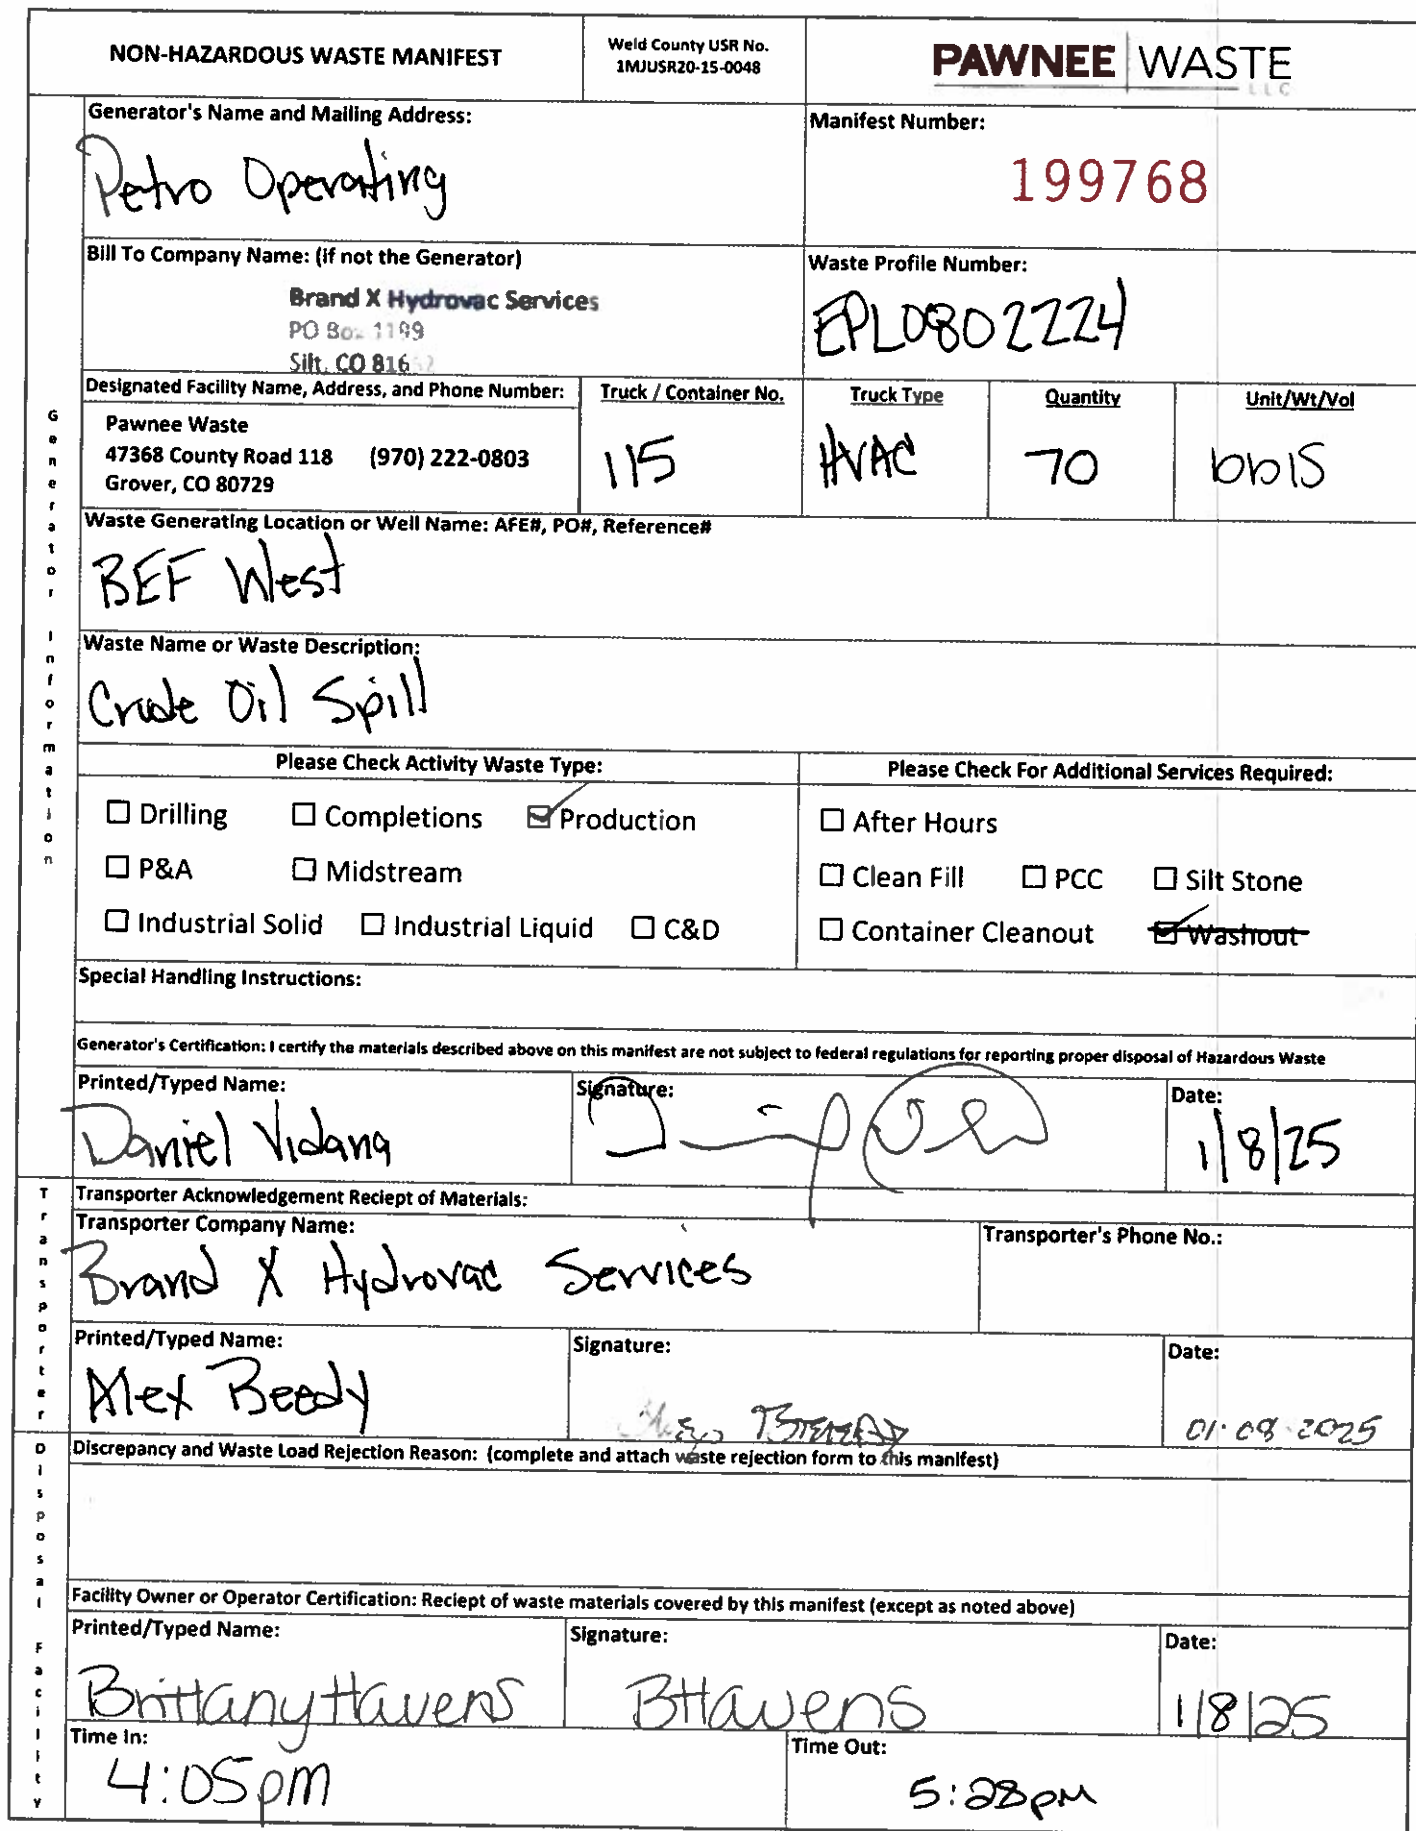 NON-HAZARDOUS WASTE MANIFEST
Weld County USR No.
1MJUSR20-15-0048
PAWNEE WASTE
LLC
Generator's Name and Mailing Address:
Petro Operating
Manifest Number:
199768
Bill To Company Name: (if not the Generator)
Brand X Hydrovac Services
PO Box 1199
Silt, CO 816
Waste Profile Number:
EPL0802224
Designated Facility Name, Address, and Phone Number:
Pawnee Waste
47368 County Road 118 (970) 222-0803
Grover, CO 80729
Truck / Container No.
115
Truck Type
HVAC
Quantity
70
Unit/Wt/Vol
bbls
Generator Information
Waste Generating Location or Well Name: AFE#, PO#, Reference#
BEF West
Waste Name or Waste Description:
Crude Oil Spill
Please Check Activity Waste Type:
Drilling Completions Production
P&A Midstream
Industrial Solid Industrial Liquid C&D
Please Check For Additional Services Required:
After Hours
Clean Fill PCC Silt Stone
Container Cleanout Washout
Special Handling Instructions:
Generator's Certification: I certify the materials described above on this manifest are not subject to federal regulations for reporting proper disposal of Hazardous Waste
Printed/Typed Name:
Daniel Vidana
Signature:
Date:
1/8/25
Transporter
Transporter Acknowledgement Reciept of Materials:
Transporter Company Name:
Brand X Hydrovac Services
Transporter's Phone No.:
Printed/Typed Name:
Alex Beedy
Signature:
Date:
01.08.2025
Disposal Facility
Discrepancy and Waste Load Rejection Reason: (complete and attach waste rejection form to this manifest)
Facility Owner or Operator Certification: Reciept of waste materials covered by this manifest (except as noted above)
Printed/Typed Name:
Brittany Havens
Signature:
BHavens
Date:
1/8/25
Time In:
4:05pm
Time Out:
5:28pm